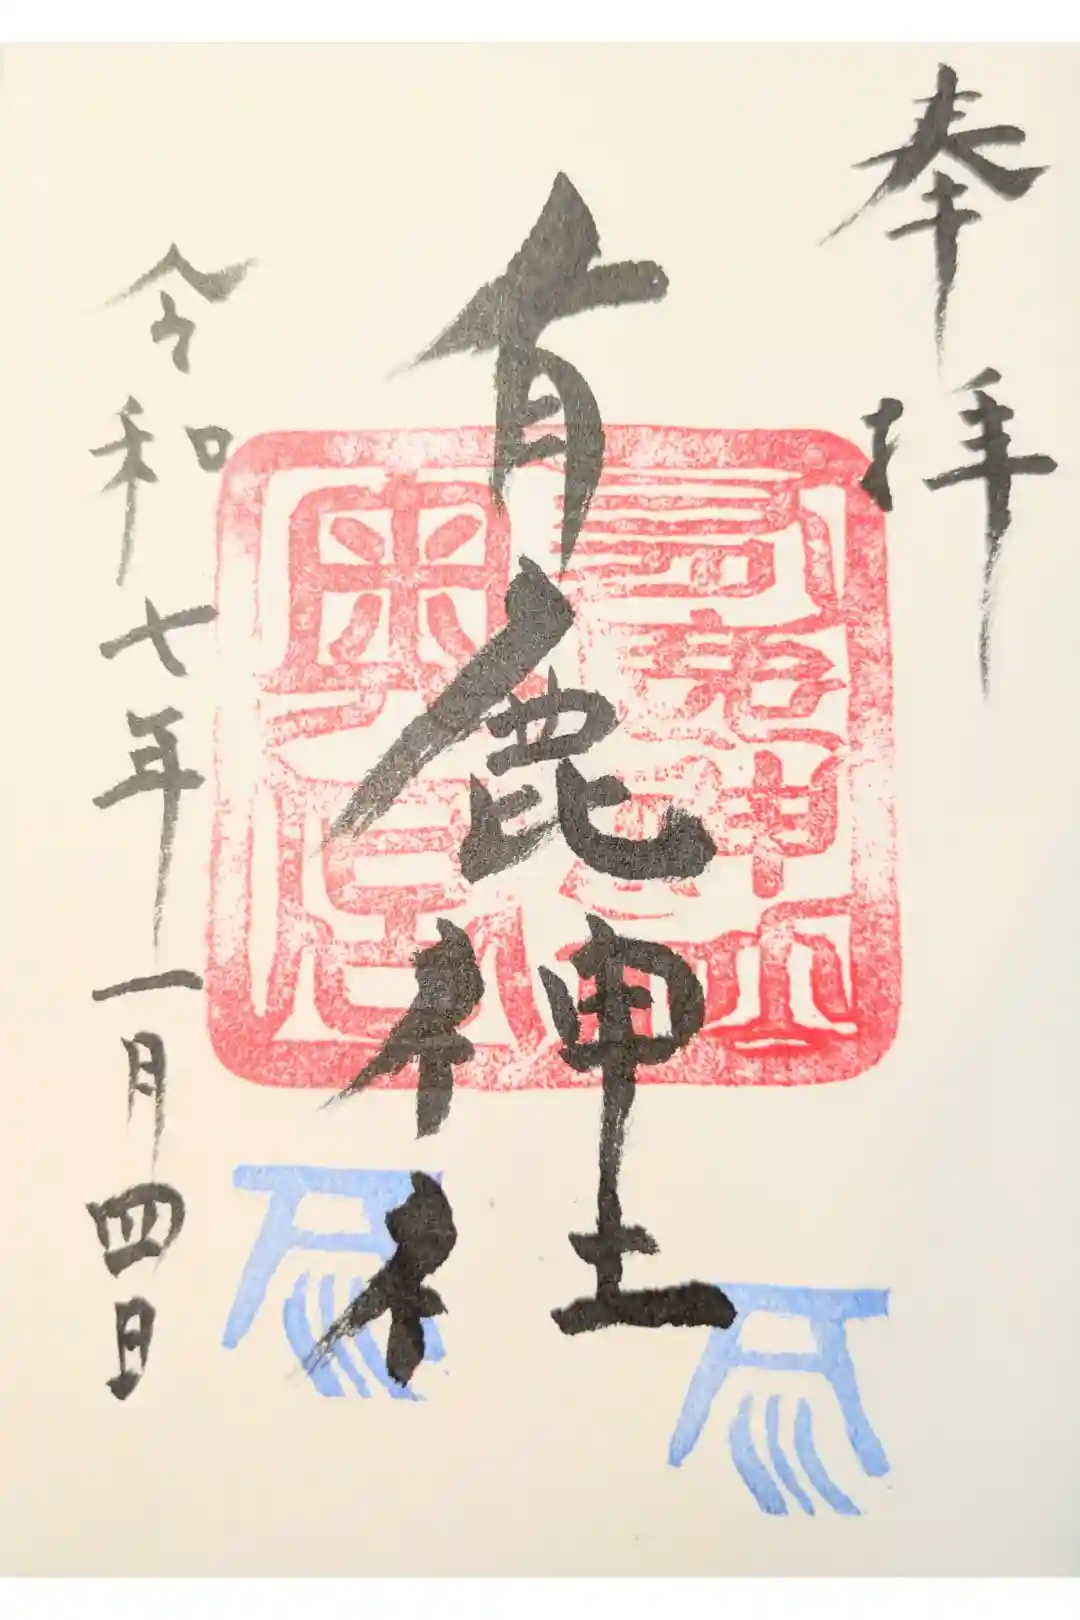 奉拝
有鹿神社
令和七年一月四日